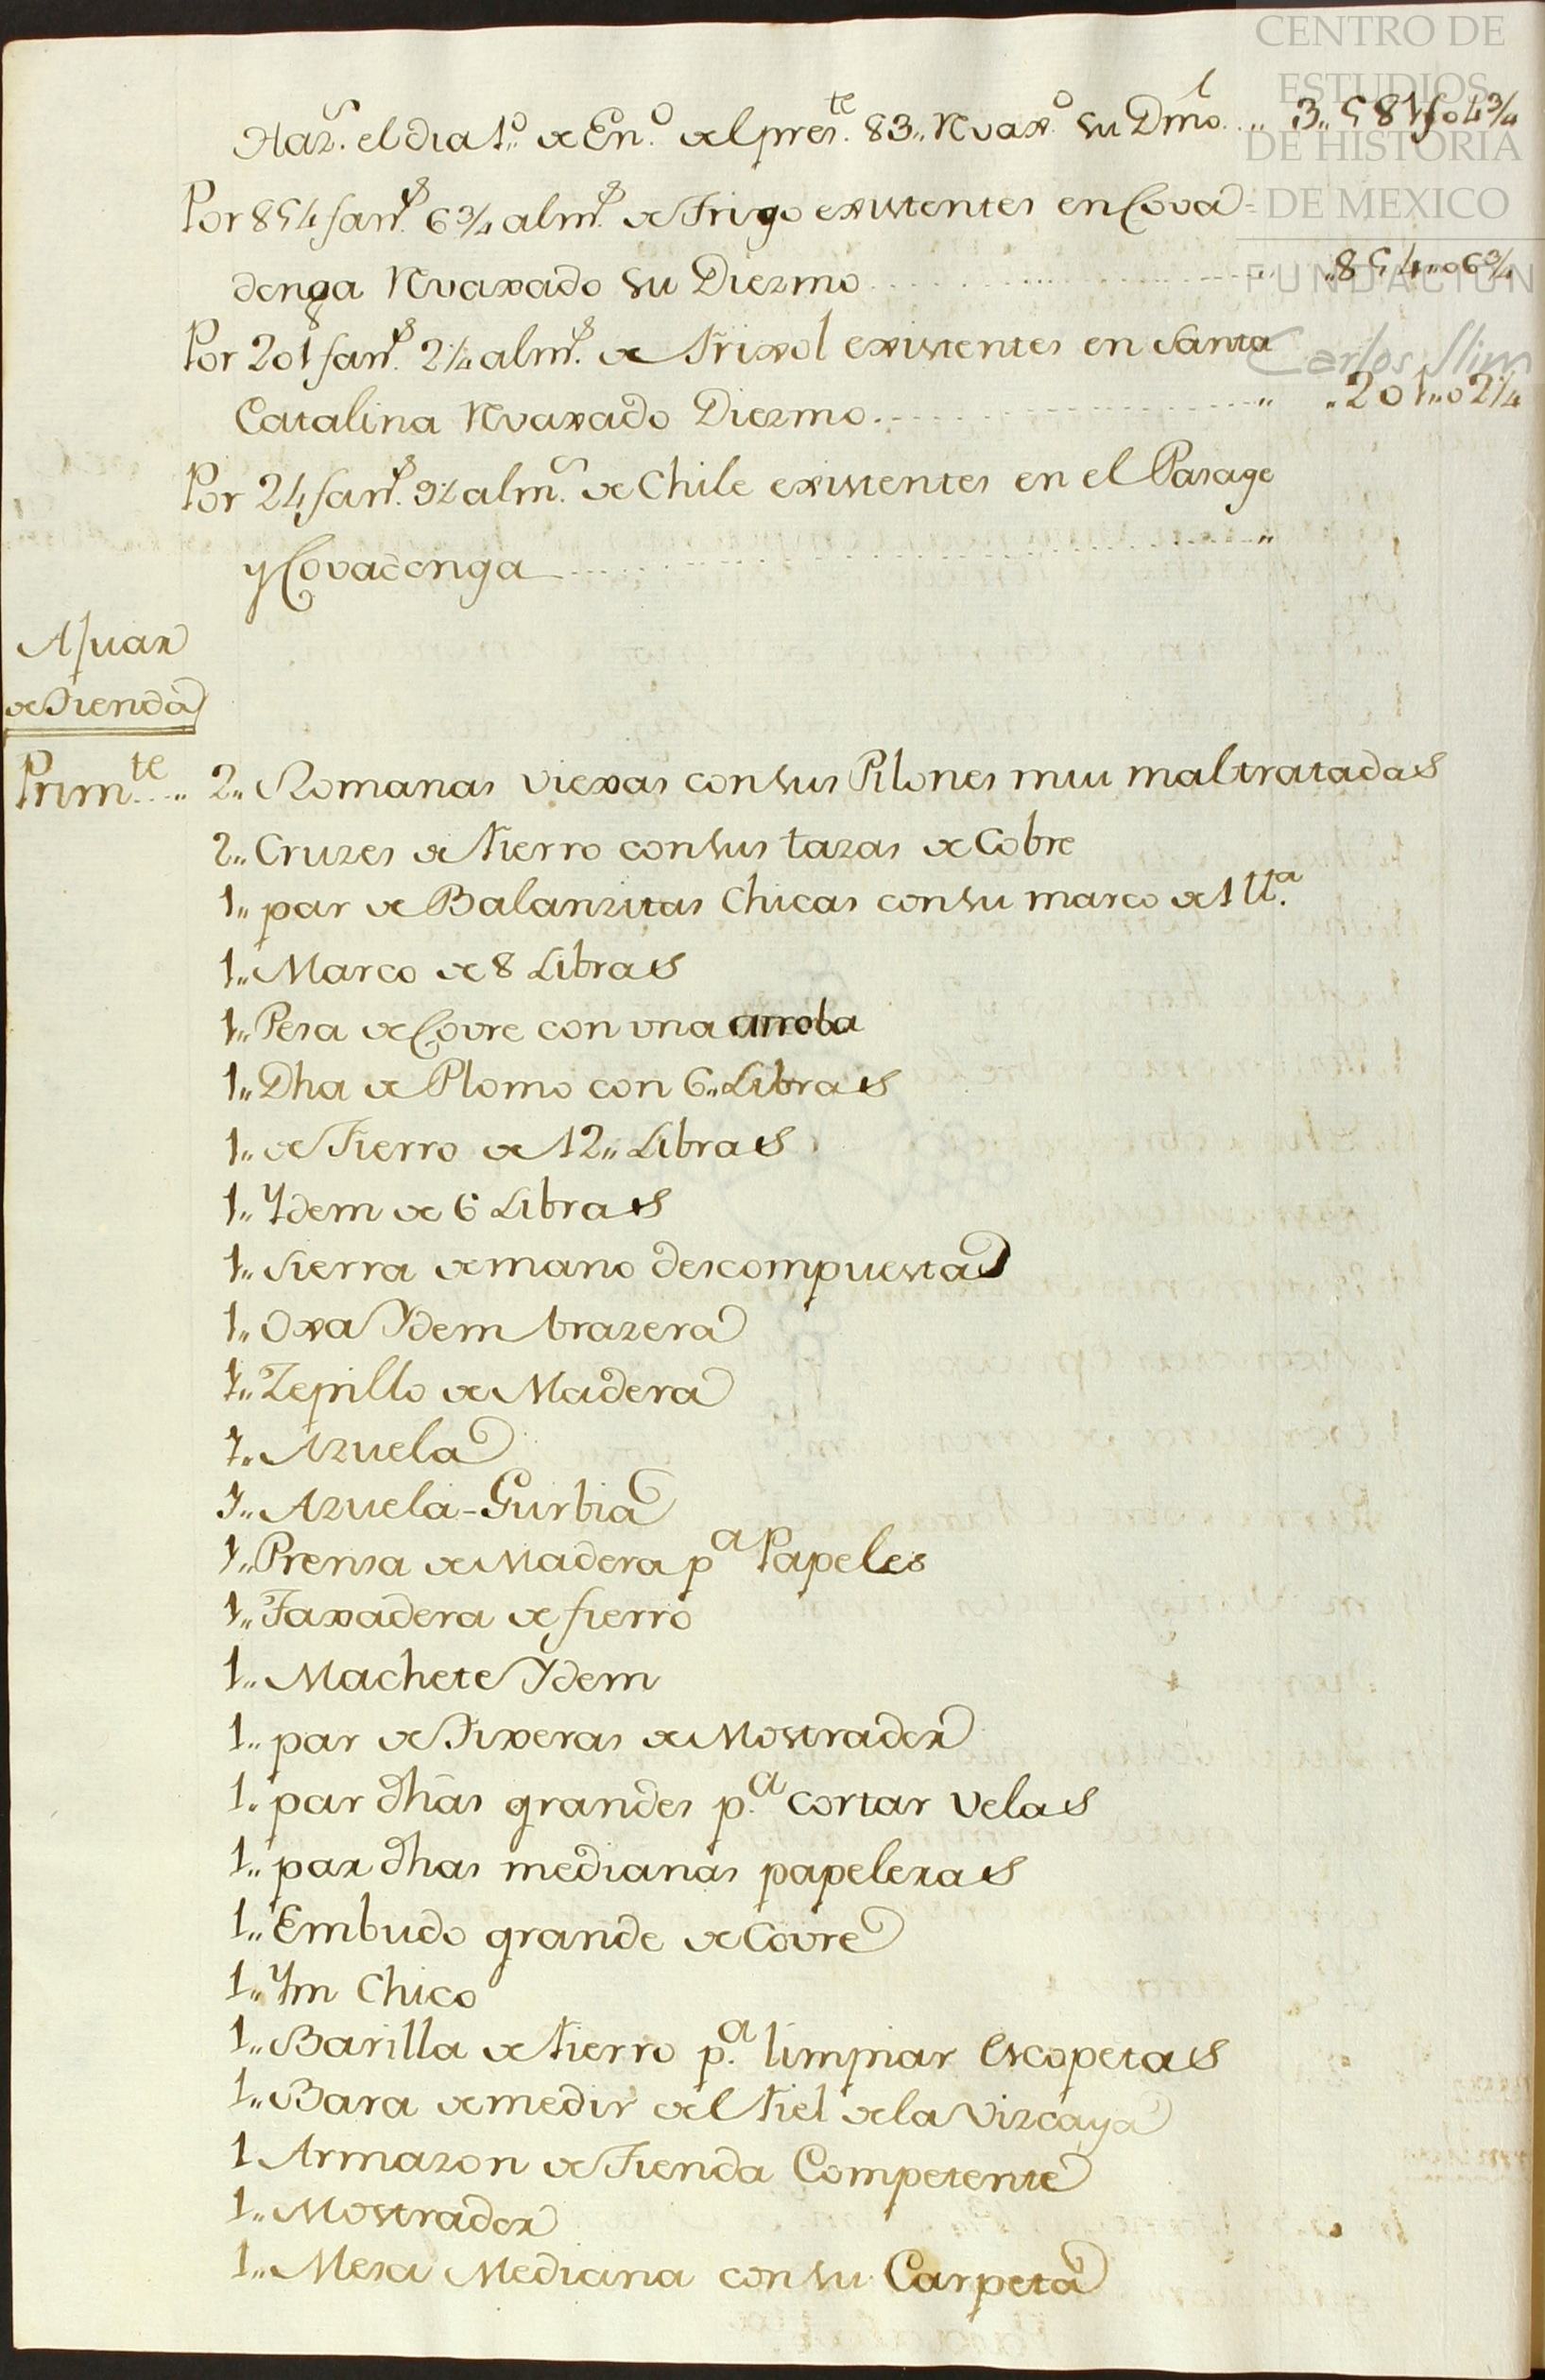 CENTRO DE
ESTUDIOS
DE HISTORIA
DE MEXICO
FUNDACION
Carlos Slim
Haz.s el dia 1.o de En.o del pres.te 83,, Rvax.o su Dmo. ,, 3,, 581 f 04¾
Por 854 fan.s 6¾ alm.s de Trigo existentes en Cova=
denga Rvaxado su Diezmo ,, ,,854,,06¾
Por 201 fan.s 2¼ alm.s de Frixol existentes en Santa
Catalina Rvaxado Diezmo ,, ,,201,,02¼
Por 24 fan.s 9½ alm.s de Chile existentes en el Pasage
y Covadenga ,,
Ajuar
de Tienda
Prim.te 2,, Romanas viexas con sus Pilones mui maltratadas
2,, Cruzes de fierro con sus tazas de Cobre
1,, par de Balanzitas Chicas con su marco de 1 ll.a
1,, Marco de 8 Libras
1,, Pesa de Covre con una arroba
1,, Dha de Plomo con 6,, Libras
1,, de Fierro de 12,, Libras
1,, Ydem de 6 Libras
1,, Sierra de mano descompuesta
1,, Oxa Ydem brazera
1,, Zepillo de Madera
1,, Azuela
1,, Azuela-Gurbia
1,, Prensa de Madera p.a Papeles
1,, Taxadera de fierro
1,, Machete Ydem
1,, par de Tixeras de Mostrador
1,, par dhas grandes p.a cortar velas
1,, par dhas medianas papeleras
1,, Embudo grande de Covre
1,, Ym Chico
1,, Barilla de fierro p.a limpiar Escopetas
1,, Bara de medir del fiel de la Vizcaya
1 Armazon de Tienda Competente
1,, Mostrador
1,, Mesa Mediana con su Carpeta